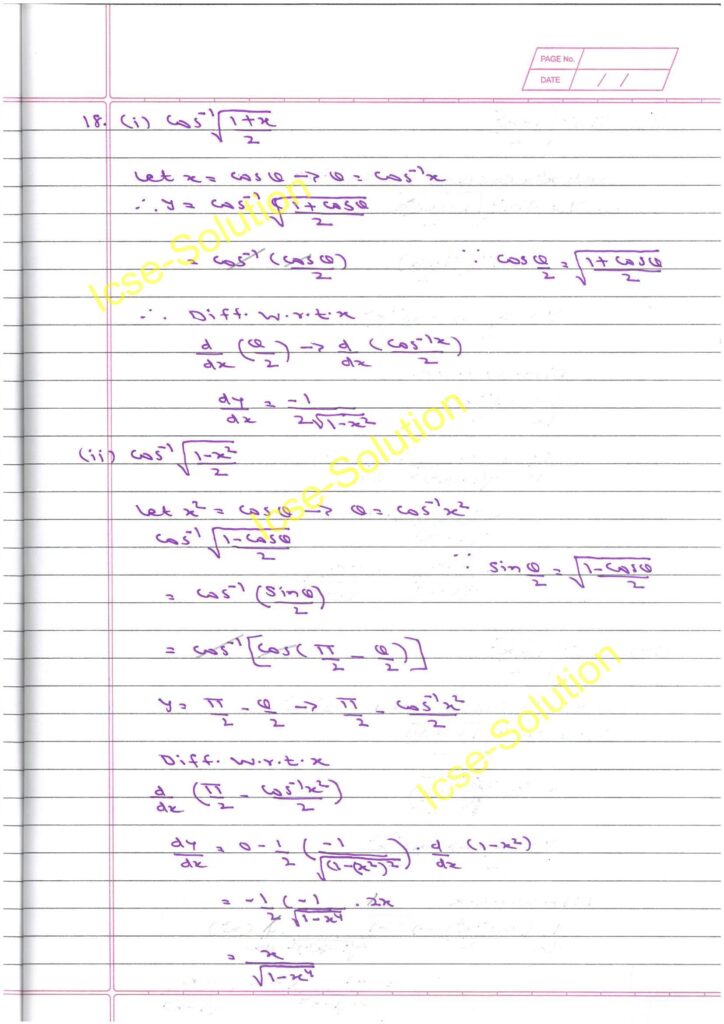 PAGE No.
DATE / /
18. (i) cos⁻¹√(1+x/2)
Let x = cosθ → θ = cos⁻¹x
∴ y = cos⁻¹√(1+cosθ/2)
= cos⁻¹(cosθ/2) ∵ cosθ/2 = √(1+cosθ/2)
∴ Diff. w.r.t.x
d/dx (θ/2) → d/dx (cos⁻¹x/2)
dy/dx = -1/2√1-x²
(ii) cos⁻¹√(1-x²/2)
Let x² = cosθ → θ = cos⁻¹x²
cos⁻¹√(1-cosθ/2)
∵ sinθ/2 = √(1-cosθ/2)
= cos⁻¹(sinθ/2)
= cos⁻¹[cos(π/2 - θ/2)]
y = π/2 - θ/2 → π/2 - cos⁻¹x²/2
Diff. w.r.t.x
d/dx (π/2 - cos⁻¹x²/2)
dy/dx = 0 - 1/2 (-1/√(1-(x²)²) · d/dx (1-x²)
= -1/2 (-1/√1-x⁴ · 2x
= x/√1-x⁴
Icse-Solution
Icse-Solution
Icse-Solution